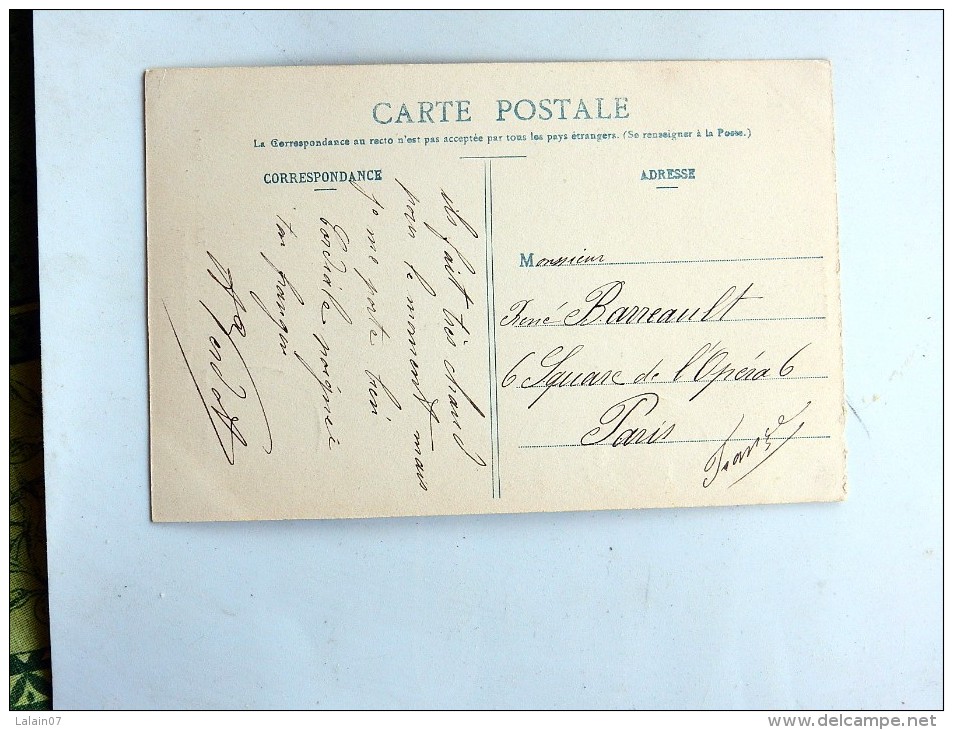 CARTE POSTALE
La Correspondance au recto n'est pas acceptée par tous les pays étrangers. (Se renseigner à la Poste.)
CORRESPONDANCE
ils fait très chaud
pour le moment mais
je me porte bien
Cordiale poignée
ton frangin
ADRESSE
Monsieur
René Barreault
6 Square de l'Opéra 6
Paris
Lalain07
www.delcampe.net